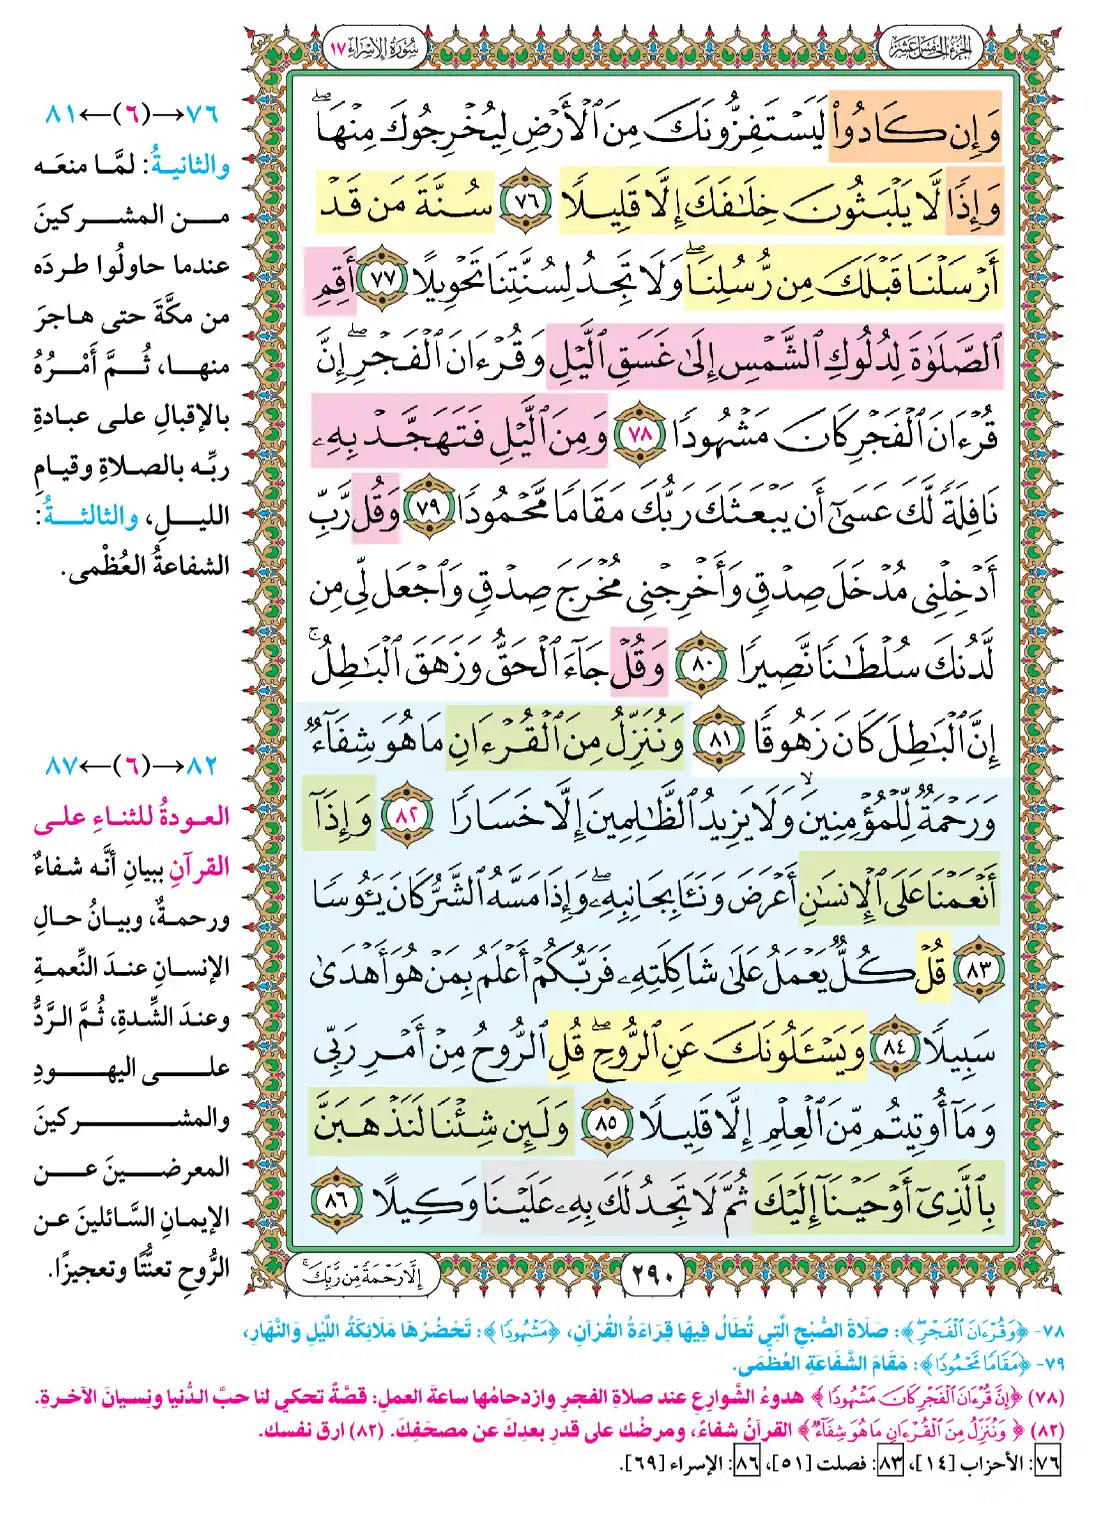 الجزء الخامس عشر
سُورَةُ الإِسْرَاء ١٧
وَإِن كَادُوا۟ لَيَسْتَفِزُّونَكَ مِنَ ٱلْأَرْضِ لِيُخْرِجُوكَ مِنْهَا ۖ
وَإِذًا لَّا يَلْبَثُونَ خِلَٰفَكَ إِلَّا قَلِيلًا ٧٦ سُنَّةَ مَن قَدْ
أَرْسَلْنَا قَبْلَكَ مِن رُّسُلِنَا ۖ وَلَا تَجِدُ لِسُنَّتِنَا تَحْوِيلًا ٧٧ أَقِمِ
ٱلصَّلَوٰةَ لِدُلُوكِ ٱلشَّمْسِ إِلَىٰ غَسَقِ ٱلَّيْلِ وَقُرْءَانَ ٱلْفَجْرِ ۖ إِنَّ
قُرْءَانَ ٱلْفَجْرِ كَانَ مَشْهُودًا ٧٨ وَمِنَ ٱلَّيْلِ فَتَهَجَّدْ بِهِۦ
نَافِلَةً لَّكَ عَسَىٰٓ أَن يَبْعَثَكَ رَبُّكَ مَقَامًا مَّحْمُودًا ٧٩ وَقُل رَّبِّ
أَدْخِلْنِى مُدْخَلَ صِدْقٍ وَأَخْرِجْنِى مُخْرَجَ صِدْقٍ وَٱجْعَل لِّى مِن
لَّدُنكَ سُلْطَٰنًا نَّصِيرًا ٨٠ وَقُلْ جَآءَ ٱلْحَقُّ وَزَهَقَ ٱلْبَٰطِلُ ۚ
إِنَّ ٱلْبَٰطِلَ كَانَ زَهُوقًا ٨١ وَنُنَزِّلُ مِنَ ٱلْقُرْءَانِ مَا هُوَ شِفَآءٌ
وَرَحْمَةٌ لِّلْمُؤْمِنِينَ ۙ وَلَا يَزِيدُ ٱلظَّٰلِمِينَ إِلَّا خَسَارًا ٨٢ وَإِذَآ
أَنْعَمْنَا عَلَى ٱلْإِنسَٰنِ أَعْرَضَ وَنَـَٔا بِجَانِبِهِۦ ۖ وَإِذَا مَسَّهُ ٱلشَّرُّ كَانَ يَـُٔوسًا
٨٣ قُلْ كُلٌّ يَعْمَلُ عَلَىٰ شَاكِلَتِهِۦ فَرَبُّكُمْ أَعْلَمُ بِمَنْ هُوَ أَهْدَىٰ
سَبِيلًا ٨٤ وَيَسْـَٔلُونَكَ عَنِ ٱلرُّوحِ ۖ قُلِ ٱلرُّوحُ مِنْ أَمْرِ رَبِّى
وَمَآ أُوتِيتُم مِّنَ ٱلْعِلْمِ إِلَّا قَلِيلًا ٨٥ وَلَئِن شِئْنَا لَنَذْهَبَنَّ
بِٱلَّذِىٓ أَوْحَيْنَآ إِلَيْكَ ثُمَّ لَا تَجِدُ لَكَ بِهِۦ عَلَيْنَا وَكِيلًا ٨٦
٢٩٠
إِلَّا رَحْمَةً مِّن رَّبِّكَ ۚ
٧٦→(٦)←٨١
والثانيةُ: لمَّا منعَه
مــن المشـــركينَ
عندما حاولُوا طردَه
من مكَّةَ حتى هاجرَ
منهـا، ثُـمَّ أَمْـرُهُ
بالإقبالِ على عبادةِ
ربِّه بالصلاةِ وقيامِ
الليـلِ، والثالثـــةُ:
الشفاعةُ العُظْمى.
٨٢→(٦)←٨٧
العـودةُ للثناءِ علـى
القرآنِ ببيانِ أنَّه شفاءٌ
ورحمـةٌ، وبيـانُ حـالِ
الإنسـانِ عنـدَ النِّعمـةِ
وعندَ الشِّدةِ، ثُمَّ الـرَّدُّ
علـــى اليهــودِ
والمشـــــــركينَ
المعرضــينَ عــن
الإيمـانِ السَّـائلينَ عـن
الرُّوحِ تعنُّتًا وتعجيزًا.
٧٨- ﴿وَقُرْءَانَ ٱلْفَجْرِ ۖ﴾: صَلَاةَ الصُّبْحِ الَّتِي تُطَالُ فِيهَا قِرَاءَةُ القُرْآنِ، ﴿مَشْهُودًا﴾: تَحْضُرُهَا مَلَائِكَةُ اللَّيْلِ وَالنَّهَارِ،
٧٩- ﴿مَقَامًا مَّحْمُودًا﴾: مَقَامَ الشَّفَاعَةِ العُظْمَى.
(٧٨) ﴿إِنَّ قُرْءَانَ ٱلْفَجْرِ كَانَ مَشْهُودًا﴾ هدوءُ الشَّوارعِ عند صلاةِ الفجرِ وازدحامُها ساعةَ العملِ: قصَّةٌ تحكي لنا حبَّ الدُّنيا ونِسيانَ الآخرةِ.
(٨٢) ﴿وَنُنَزِّلُ مِنَ ٱلْقُرْءَانِ مَا هُوَ شِفَآءٌ﴾ القرآنُ شفاءٌ، ومرضُك على قدرِ بعدِكَ عن مصحَفِكَ. (٨٢) ارق نفسك.
٧٦: الأحزاب [١٤]، ٨٣: فصلت [٥١]، ٨٦: الإسراء [٦٩].